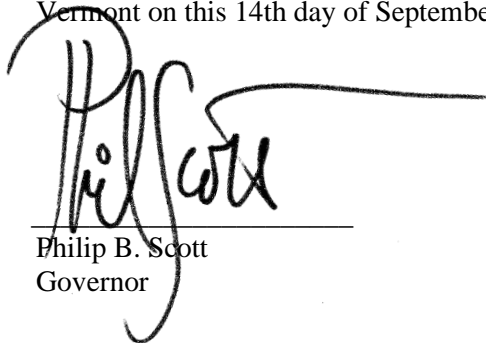 Vermont on this 14th day of Septembe
Phil Scott
Philip B. Scott
Governor